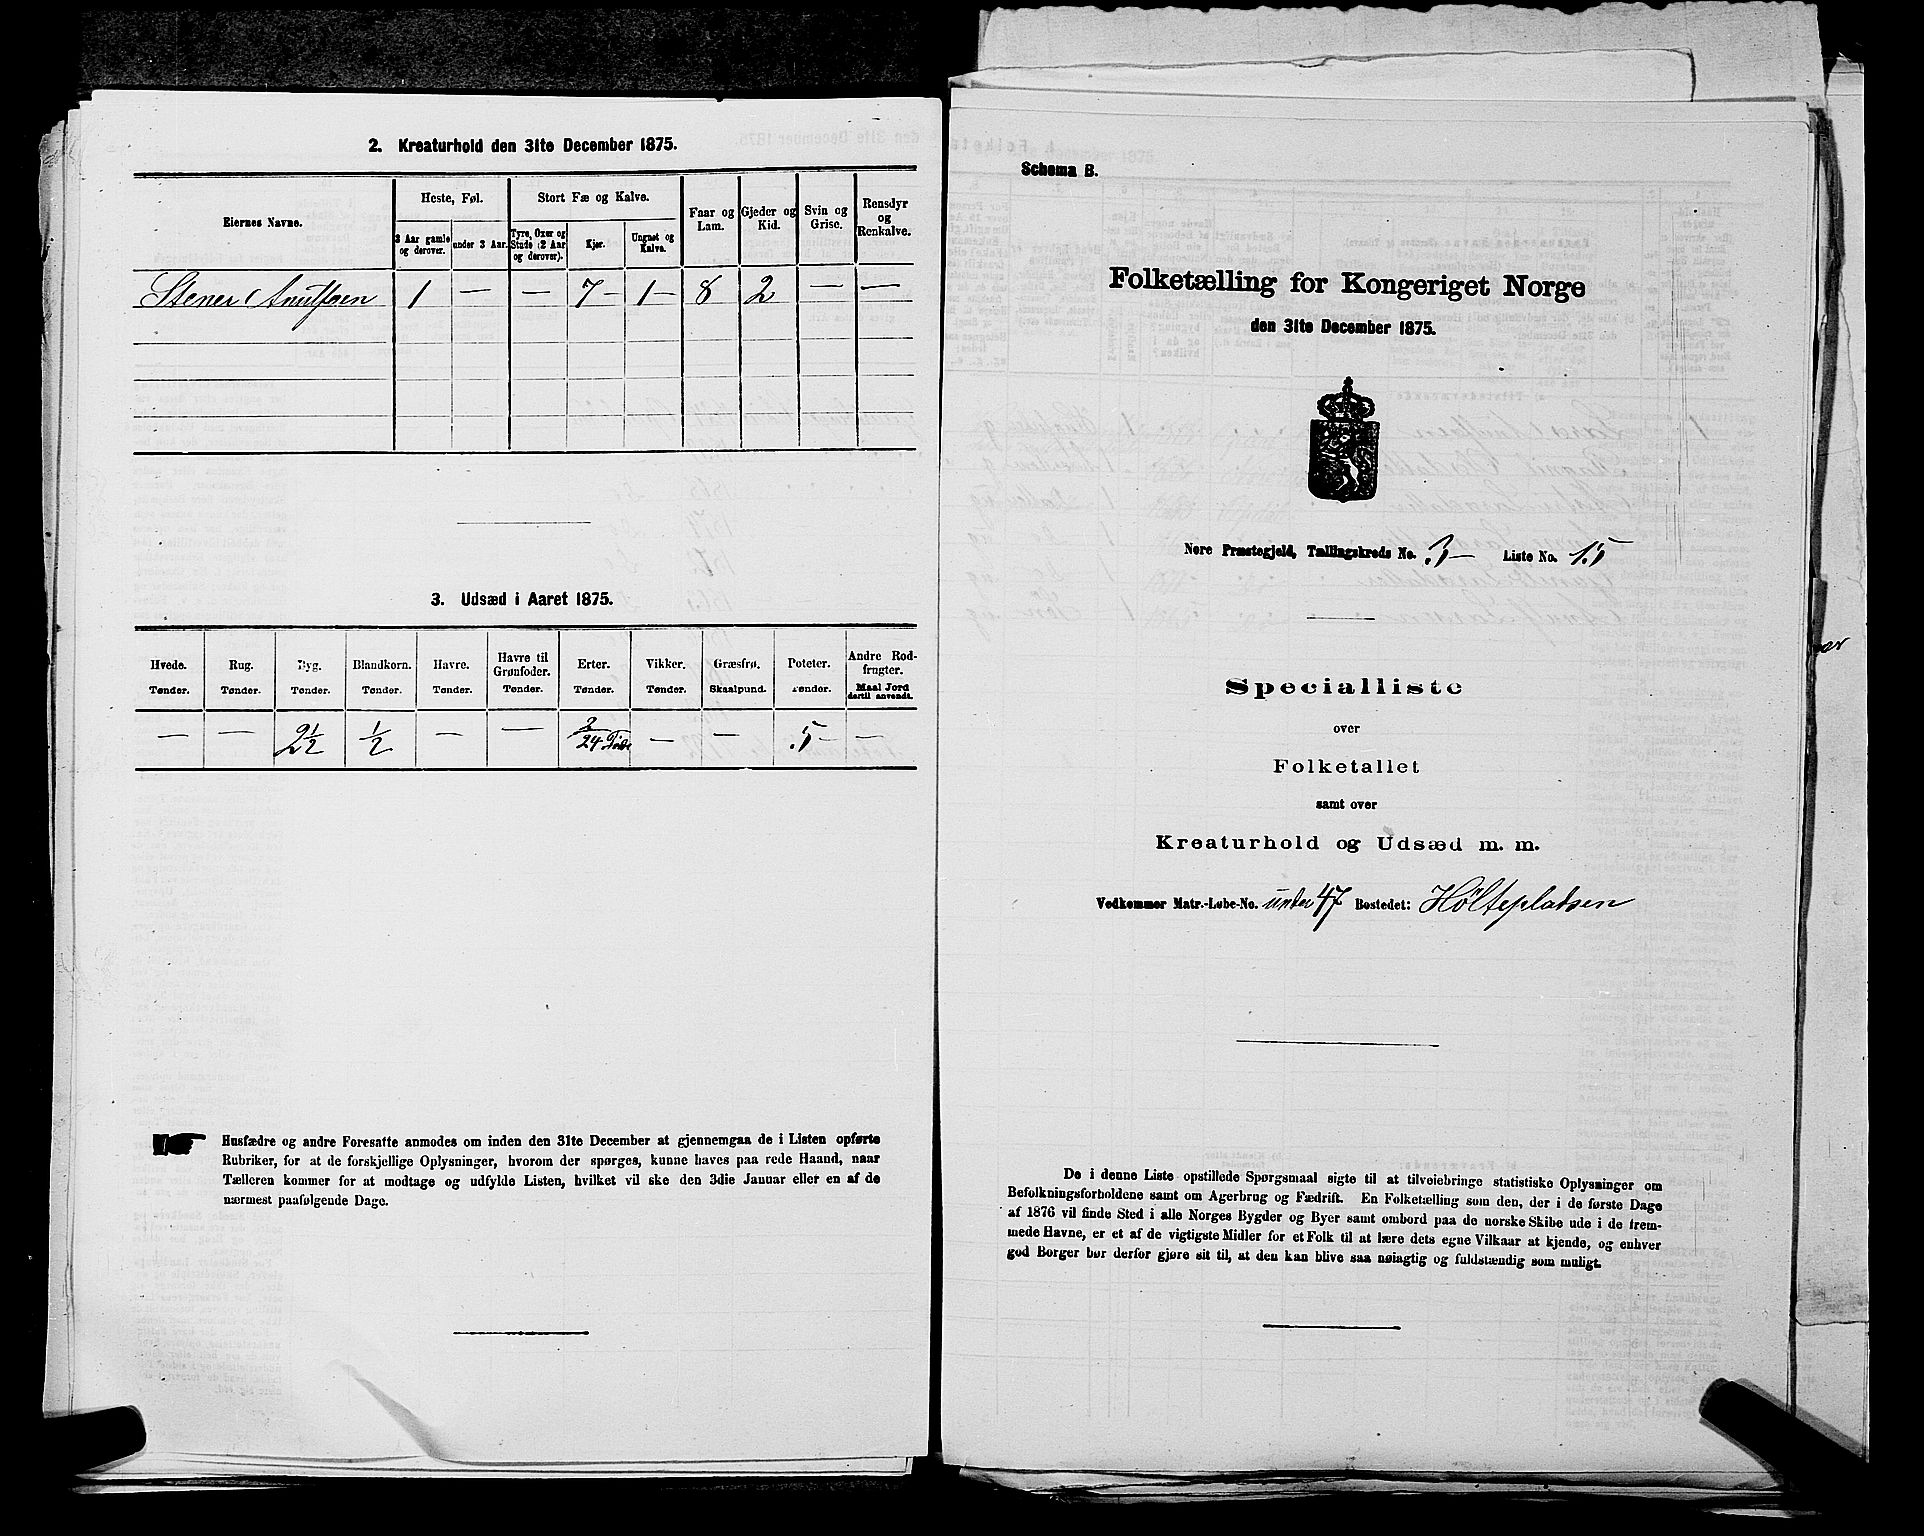 2. Kreaturhold den 31te December 1875.
Eiernes Navne.
Heste, Føl.
Stort Fæ og Kalve.
Faar og Lam.
Gjeder og Kid.
Svin og Grise.
Rensdyr og Renkalve.
3 Aar gamle og derover.
under 3 Aar.
Tyre, Oxer og Stude (2 Aar og derover).
Kjør.
Ungnøt og Kalve.
Stener Anulfsen 1 — — 7 — 1 — 8 2 — —
3. Udsæd i Aaret 1875.
Hvede. Rug. Byg. Blandkorn. Havre. Havre til Grønfoder. Erter. Vikker. Græsfrø. Poteter. Andre Rodfrugter.
Tønder. Tønder. Tønder. Tønder. Tønder. Tønder. Tønder. Tønder. Skaalpund. Tønder. Maal Jord dertil anvendt.
— — 2½ ½ — — 2/24 — — 5 — —
Husfædre og andre Foresatte anmodes om inden den 31te December at gjennemgaa de i Listen opførte
Rubriker, for at de forskjellige Oplysninger, hvorom der spørges, kunne haves paa rede Haand, naar
Tælleren kommer for at modtage og udfylde Listen, hvilket vil ske den 3die Januar eller en af de
nærmest paafølgende Dage.
Schema B.
Folketælling for Kongeriget Norge
den 31te December 1875.
Nore Præstegjeld, Tællingskreds No. 3 — Liste No. 15
Specialliste
over
Folketallet
samt over
Kreaturhold og Udsæd m. m.
Vedkommer Matr.-Løbe-No. under 47 Bostedet: Hölteplatsen
De i denne Liste opstillede Spørgsmaal sigte til at tilveiebringe statistiske Oplysninger om
Befolkningsforholdene samt om Agerbrug og Fædrift. En Folketælling som den, der i de første Dage
af 1876 vil finde Sted i alle Norges Bygder og Byer samt ombord paa de norske Skibe ude i de frem-
mede Havne, er et af de vigtigste Midler for et Folk til at lære dets egne Vilkaar at kjende, og enhver
god Borger bør derfor gjøre sit til, at den kan blive saa nøiagtig og fuldstændig som muligt.